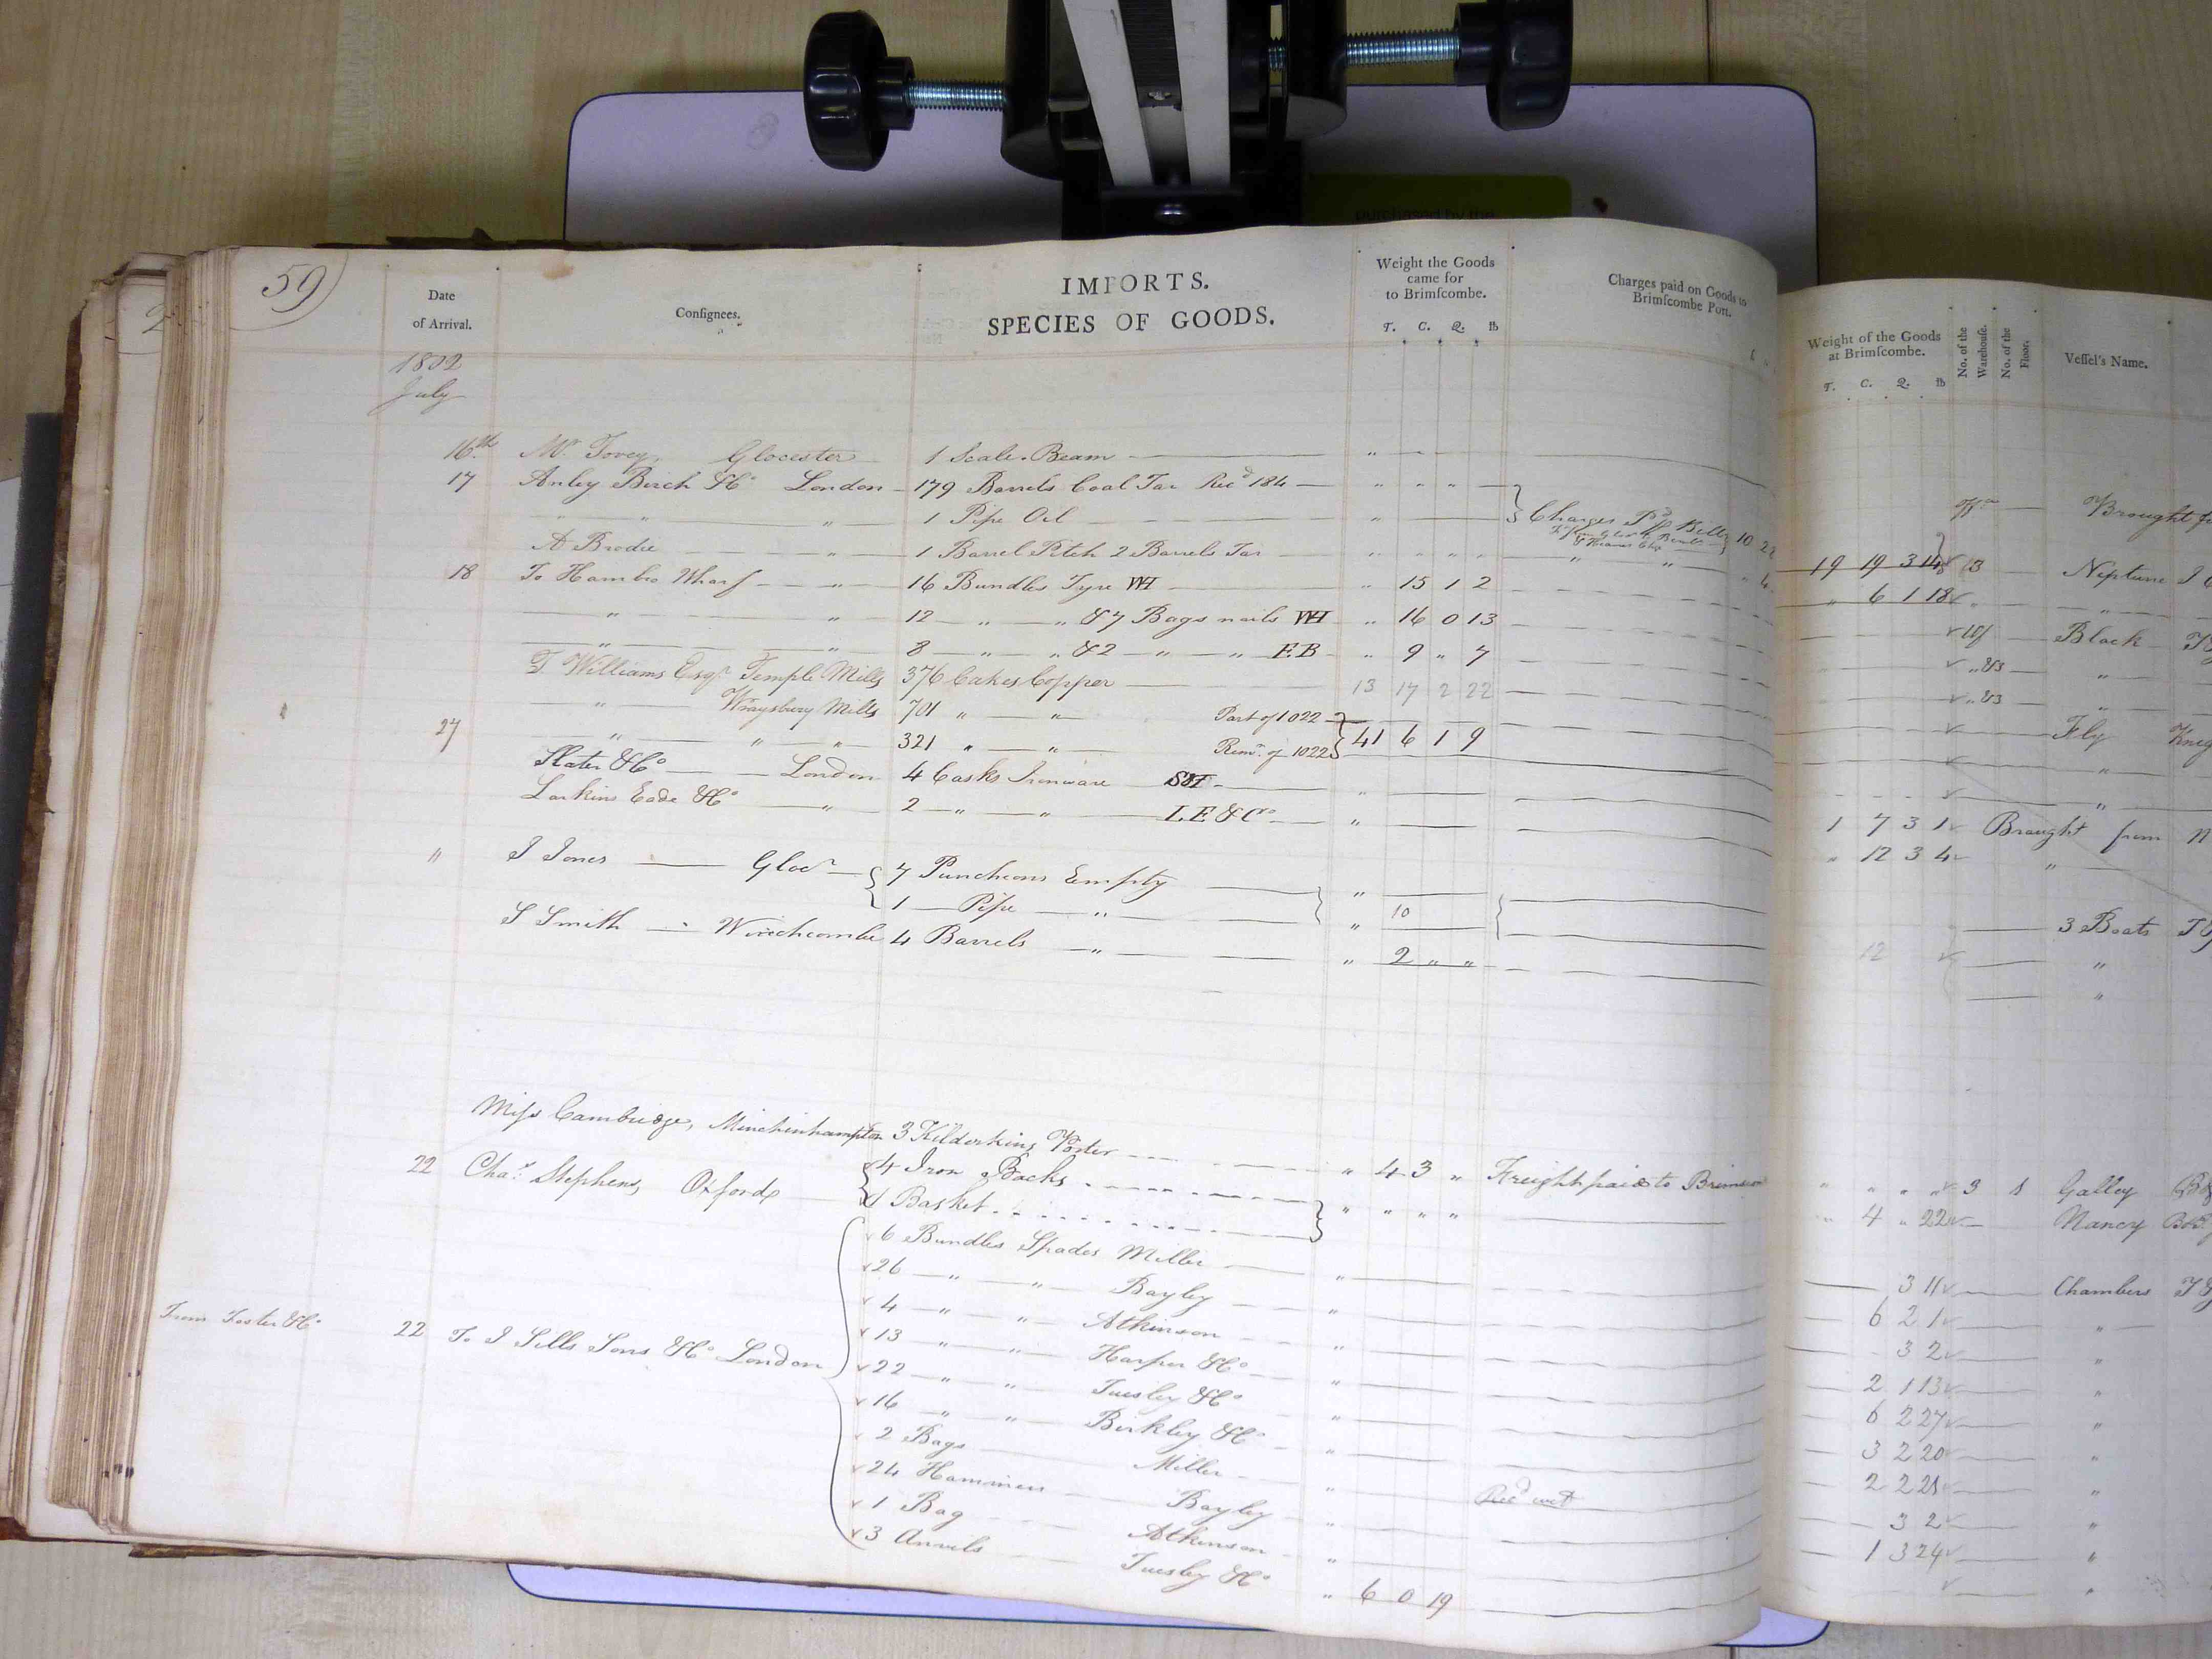 purchased by the
59
2
IMPORTS.
Date of Arrival. Consignees. SPECIES OF GOODS. Weight the Goods came for to Brimscombe. T. C. Q. lb Charges paid on Goods to Brimscombe Port.
1802
July
16th Mr Tovey, Glocester 1 Scale Beam "
17 Anley Birch & Co London 179 Barrels Coal Tar Recd 184 " " "
" " 1 Pipe Oil " Charges Pd
A Brodie " 1 Barrel Pitch 2 Barrels Tar " " " " " "
18 To Hambro Wharf " 16 Bundles Tyre WH " 15 1 2
" " 12 " " & 7 Bags nails WH " 16 0 13
" " 8 " " & 2 " " EB " 9 " 7
T Williams Esqr Temple Mills 376 Cakes Copper 13 17 2 22
" Wraysbury Mills 701 " " Part of 1022
27 " " " 321 " " Remr of 1022 41 6 1 9
Slater & Co London 4 Casks Ironware
Larkins Eade & Co " 2 " " LE & Co "
" J Jones Glocr 7 Puncheons Empty "
1 Pipe " " 10
S Smith Winchcombe 4 Barrels " " 2 " "
Miss Cambridge, Minchinhampton 3 Kilderkins Porter " 4 3 " Freight paid to
22 Chas Stephens, Oxford 4 Iron Backs " " " "
1 Basket
6 Bundles Spades Miller "
26 " " Bayley "
4 " " Atkinson "
13 " " Harper & Co "
From Foster & Co 22 To J Sills Sons & Co London 22 " " Tuesley & Co "
16 " " Birkley & Co "
2 Bags Miller "
24 Hammers Bayley " Recd wet
1 Bag Atkinson "
3 Anvils Tuesley & Co " 6 0 19
Weight of the Goods at Brimscombe. T. C. Q. lb No. of the Warehouse. No. of the Floor. Vessel's Name.
Brought
19 19 3 14 13 Neptune
" 6 1 18 " "
Black
" "
"
Fly
"
"
1 7 3 1 Brought from
" 12 3 4 "
3 Boats
12 "
"
" " " " 3 1 Galley
4 " 22 Nancy
3 11 Chambers
6 2 1 "
3 2 "
2 1 13 "
6 2 27 "
3 2 20 "
2 2 21 "
3 2 "
1 3 24 "
"